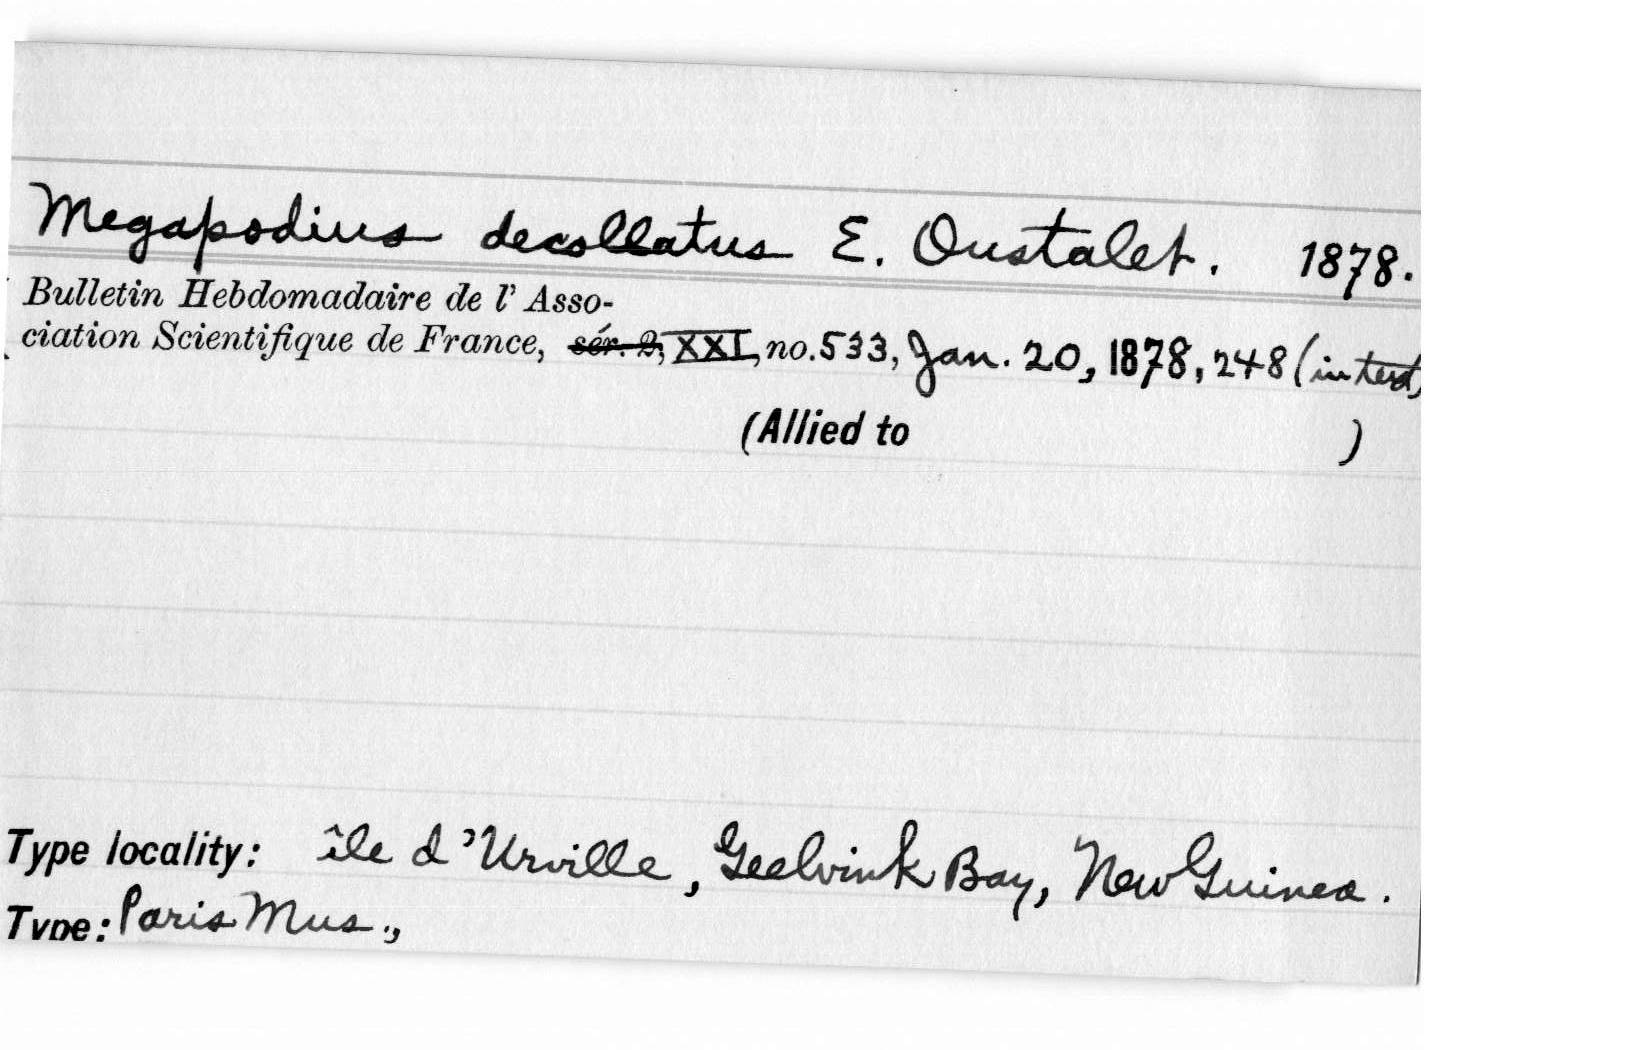 Megapodius decollatus E. Oustalet. 1878.
Bulletin Hebdomadaire de l' Asso-
ciation Scientifique de France, sér. 2, XXI, no. 533, Jan. 20, 1878, 248 (in text)
(Allied to )
Type locality: île d'Urville, Geelvink Bay, New Guinea.
Type: Paris Mus.,